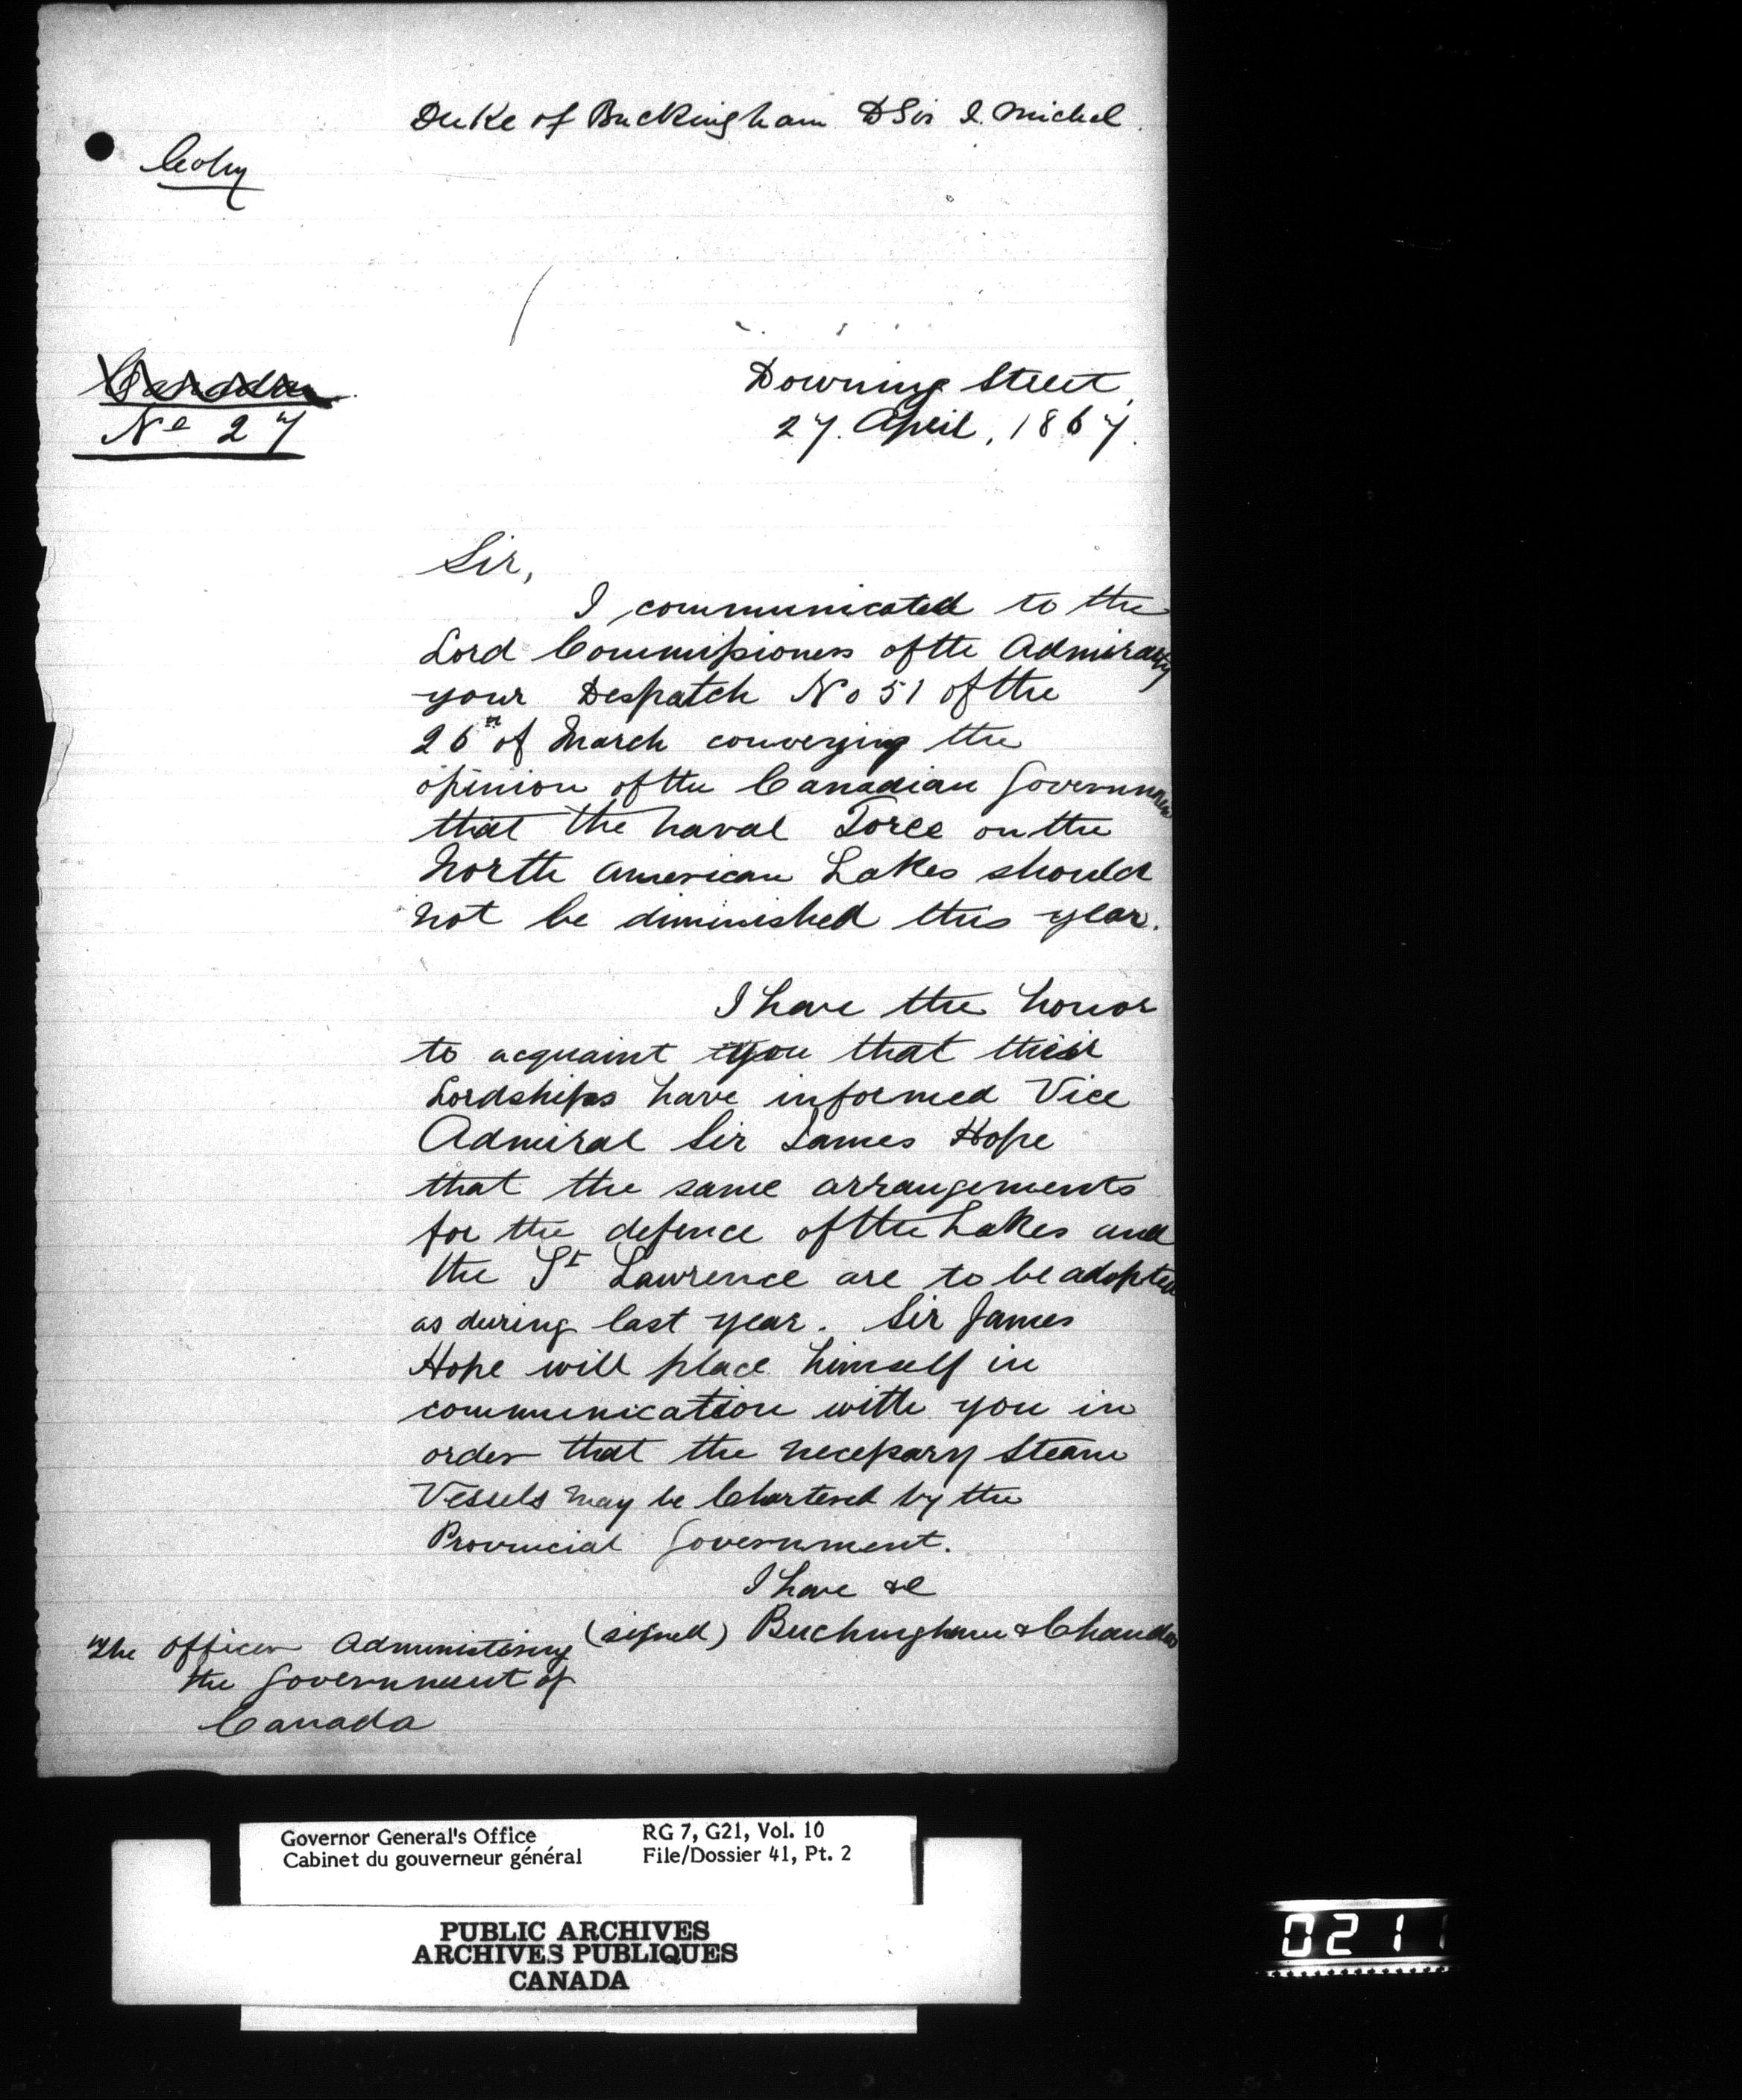 Duke of Buckingham to Sir J. Michel.
Copy
Canada
No 27
Downing Street,
27. April, 1867.
Sir,
I communicated to the
Lord Commissioners of the Admiralty
your Despatch No 51 of the
26th of March conveying the
opinion of the Canadian Government
that the naval Force on the
North American Lakes should
not be diminished this year.
I have the honor
to acquaint you that their
Lordships have informed Vice
Admiral Sir James Hope
that the same arrangements
for the defence of the Lakes and
the St Lawrence are to be adopted
as during last year. Sir James
Hope will place himself in
communication with you in
order that the necessary Steam
Vessels may be Chartered by the
Provincial Government.
I have &c
(signed) Buckingham & Chandos
The Officer Administering
the Government of
Canada
Governor General's Office
Cabinet du gouverneur général
RG 7, G21, Vol. 10
File/Dossier 41, Pt. 2
PUBLIC ARCHIVES
ARCHIVES PUBLIQUES
CANADA
0211